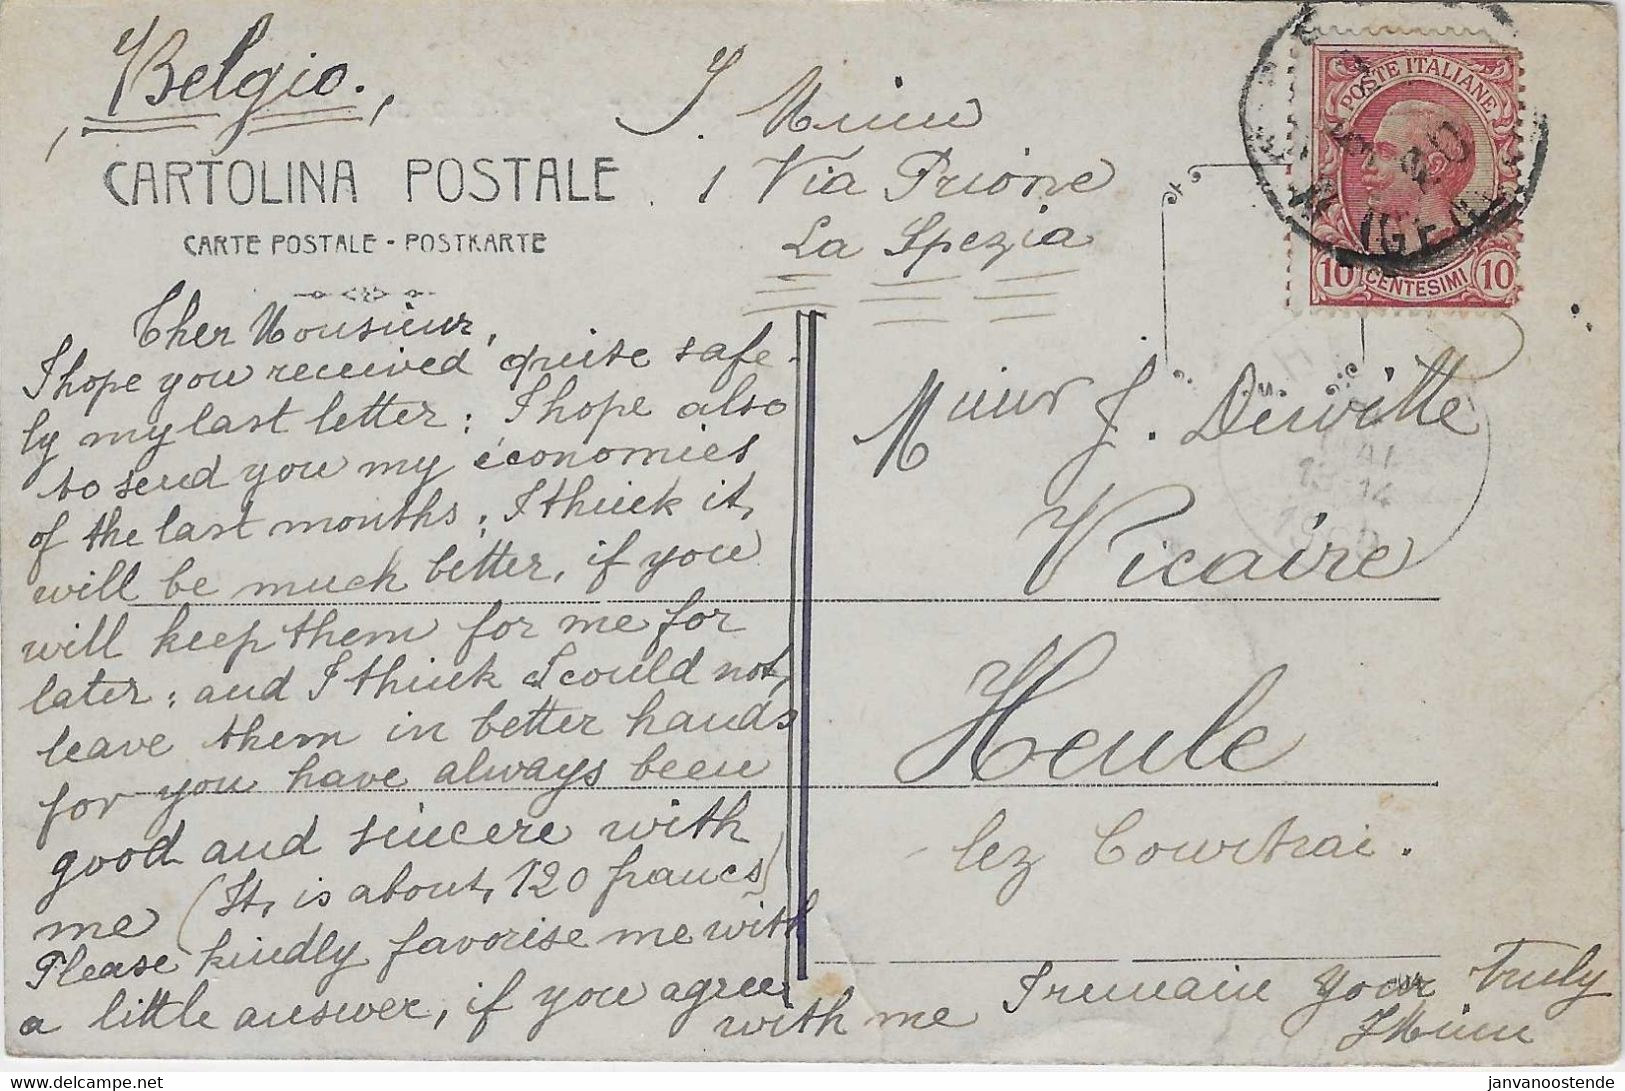 Belgio.
CARTOLINA POSTALE
CARTE POSTALE - POSTKARTE
J.
1 Via Prione
La Spezia
POSTE ITALIANE
10 CENTESIMI 10
Cher Monsieur,
I hope you received quite safe-
ly my last letter: I hope also
to send you my économies
of the last months; I think it
will be much better, if you
will keep them for me for
later: and I think I could not
leave them in better hands
for you have always been
good and sincere with
me (It is about 120 francs)
Please kindly favorise me with
a little answer, if you agree
with me I remain your truly
Mieur J. Dewitte
Vicaire
Heule
lez Courtrai.
13-14
janvanoostende